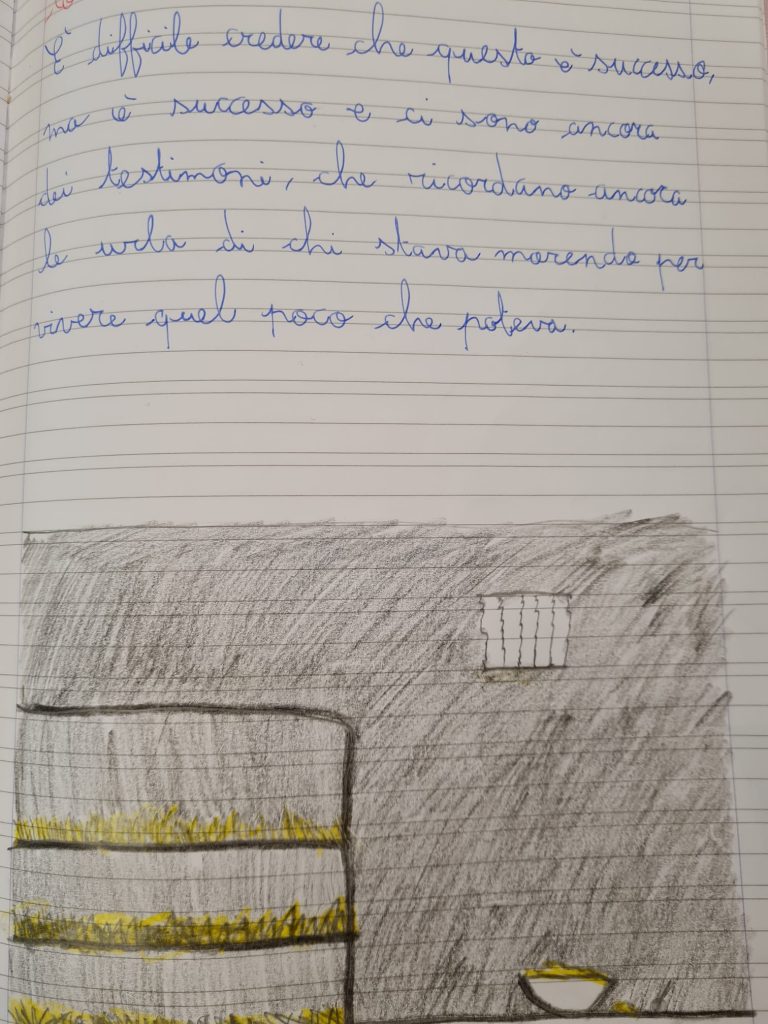 È difficile credere che questo è successo,
ma è successo e ci sono ancora
dei testimoni, che ricordano ancora
le urla di chi stava morendo per
vivere quel poco che poteva.